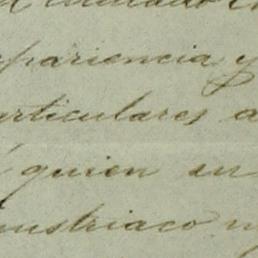 apariencia y
articulares a
á quien en
austriaco n